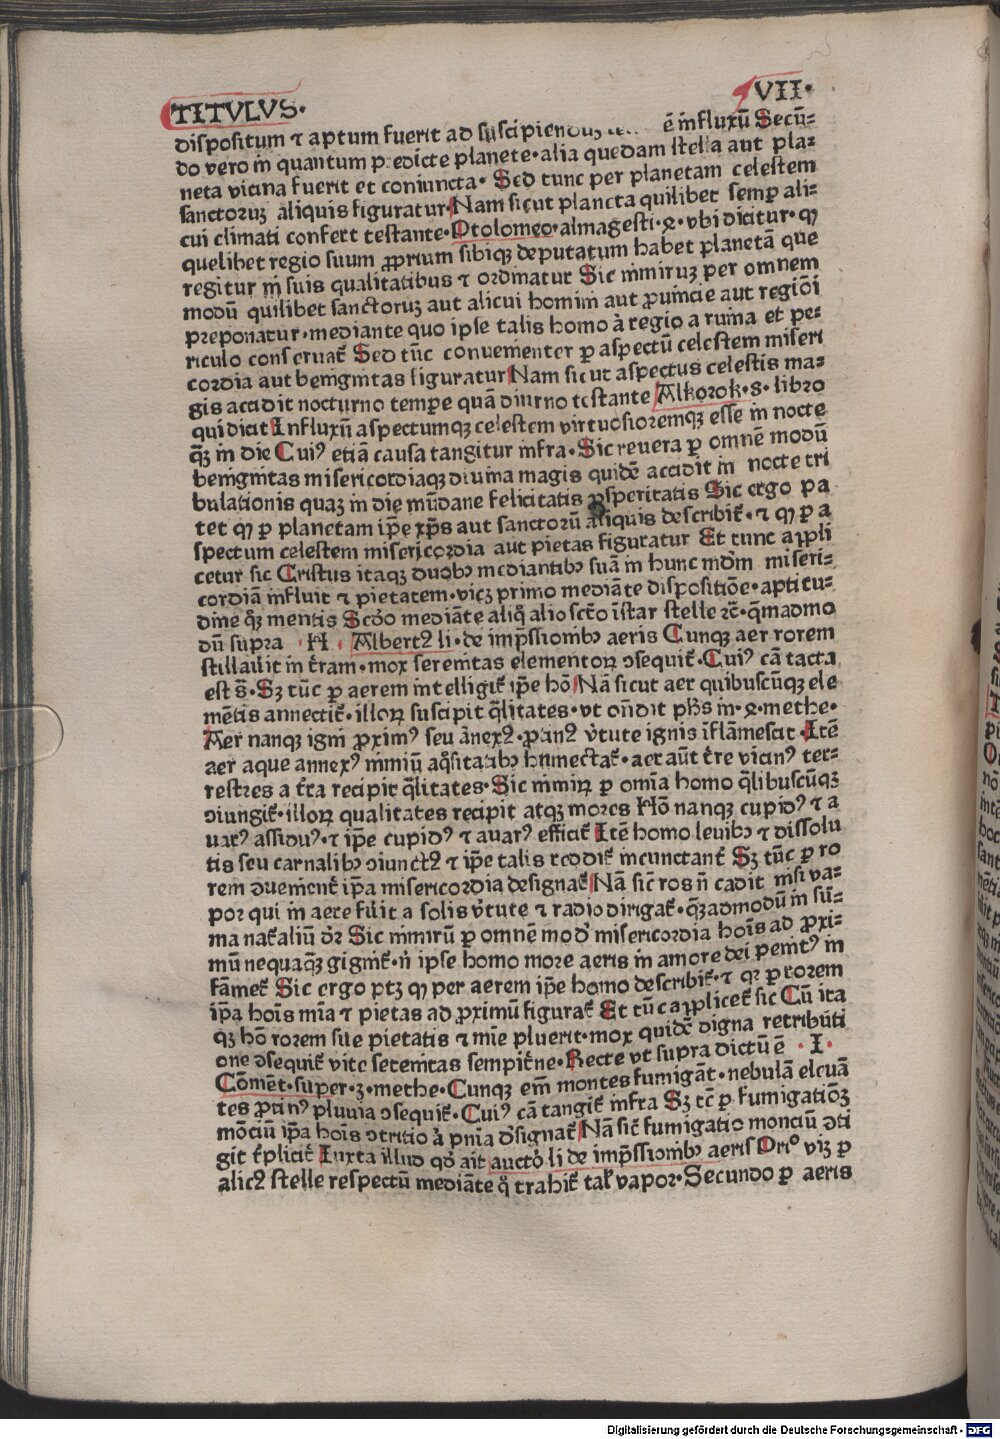 TITVLVS· VII·
dispositum ⁊ aptum fuerit ad suscipienduꝫ ē influxū Secū⸗
do vero in quantum predicte planete·alia quedam stella aut pla⸗
neta vicina fuerit et coniuncta· Sed tunc per planetam celestem
sanctoruꝫ aliquis figuratur Nam sicut planeta quilibet semꝑ ali⸗
cui climati confert testante·Ptolomeo·almagesti·8·vbi dicitur·ꝙ
quelibet regio suum ꝓprium sibiqꝫ deputatum habet planetā que
regitur in suis qualitatibus ⁊ ordinatur Sic nimiruꝫ per omnem
modū quilibet sanctoruꝫ aut alicui homini aut ꝓuincie aut regiōi
preponatur·mediante quo ipse talis homo à regio a ruina et pe⸗
riculo conseruat̄ Sed tūc conuenienter ꝑ aspectū celestem miseri
cordia aut benignitas figuratur Nam sicut aspectus celestis ma⸗
gis accidit nocturno tempore quā diurno testante Alkorok·8·libro
qui dicit Influxū aspectumqꝫ celestem virtuosioremqꝫ esse in nocte
qꝫ̄ in die Cuiꝰ etiā causa tangitur infra·Sic reuera ꝑ omnē modū
benignitas misericordiaqꝫ diuina magis quidē accidit in nocte tri
bulationis quaꝫ in die mūdane felicitatis ꝓsperitatis Sic ergo pa
tet ꝙ ꝑ planetam ip̄e xp̄s aut sanctorū aliquis describit̄·⁊ ꝙ ꝑ a
spectum celestem misericordia aut pietas figuratur Et tunc appli
cetur sic Cristus itaqꝫ duobꝫ mediantibꝫ suā in hunc mūdm miseri⸗
cordiā influit ⁊ pietatem·vicꝫ primo mediāte dispositiōe·aptitu⸗
dine qꝫ̄ mentis Scd̄o mediāte aliq̄ alio scto īstar stelle ⁊c̄·qm̄admo
dū supra ·H· Albertꝰ li·de imp̄ssionibꝫ aeris Cunqꝫ aer rorem
stillauit in t̄ram·mox serenitas elementoꝝ ↄsequit̄·Cuiꝰ cā tacta
est s̄·Sꝫ tūc ꝑ aerem intelligit̄ ip̄e hō Nā sicut aer quibuscūqꝫ ele
mētis annectit̄·illoꝝ suscipit q̄litates·vt on̄dit ph̄s in·8·methe·
Aer nanqꝫ igni ꝓximꝰ seu ānexꝰ·ꝓtinꝰ v̄tute ignis īflāmescit·Itē
aer aque annexꝰ nimiū aq̄sitatibꝫ humectat̄·aer aūt t̄re vicinꝰ ter⸗
restres a t̄ra recipit q̄litates·Sic nimiꝝ ꝑ omīa homo q̄libuscūqꝫ
ↄiungit̄·illoꝝ qualitates recipit atqꝫ mores Hō nanqꝫ cupidꝰ ⁊ a
uarꝰ assiduꝰ·⁊ ip̄e cupidꝰ ⁊ auarꝰ efficit̄ Itē homo leuibꝫ ⁊ dissolu
tis seu carnalibꝫ ↄiunctꝰ ⁊ ip̄e talis reddit̄ incunctant̄ Sꝫ tūc ꝑ ro
rem ↄueniēt̄ ip̄a misericordia designat̄ Nā sic̄ ros n̄ cadit nisi va⸗
por qui in aere fuit a solis v̄tute ⁊ radio dirigat̄·qꝫadmodū in sū⸗
ma nat̄aliū d̄r Sic nimirū ꝑ omnē modꝰ misericordia hoīs ad ꝓxi⸗
mū nequaqꝫ̄ gignit̄·n̄ ipse homo more aeris in amore dei penitꝰ in
fāmet̄ Sic ergo ptꝫ ꝙ per aerem ip̄e homo describit̄·⁊ ꝙ ꝑ rorem
ip̄a hoīs mīa ⁊ pietas ad ꝓximū figurat̄ Et tūc applicet̄ sic Cū ita
qꝫ hō rorem sue pietatis ⁊ mīe pluerit·mox quidē digna retributi
one ↄsequit̄ vite seternitas sempit̄ne·Recte vt supra dictū ē ·I·
Cōment·super·3·methe·Cunqꝫ em̄ montes fumigāt·nebulā eleuā
tes ꝓtinꝰ pluuia ↄsequit̄·Cuiꝰ cā tangit̄ infra Sꝫ tc̄ ꝑ fumigatiōꝫ
mōciū ip̄a hoīs ↄtritio à pnīa d̄signat̄ Nā sic̄ fumigatio monciū ↄti
git t̄plicit̄ Iuxta illud qd̄ ait auctor̄ li de imp̄ssionibꝫ aeris Prio viꝫ ꝑ
alicꝰ stelle respectū mediāte q̄ trahit̄ tal̄ vapor·Secundo ꝑ aeris
Digitalisierung gefördert durch die Deutsche Forschungsgemeinschaft - DFG